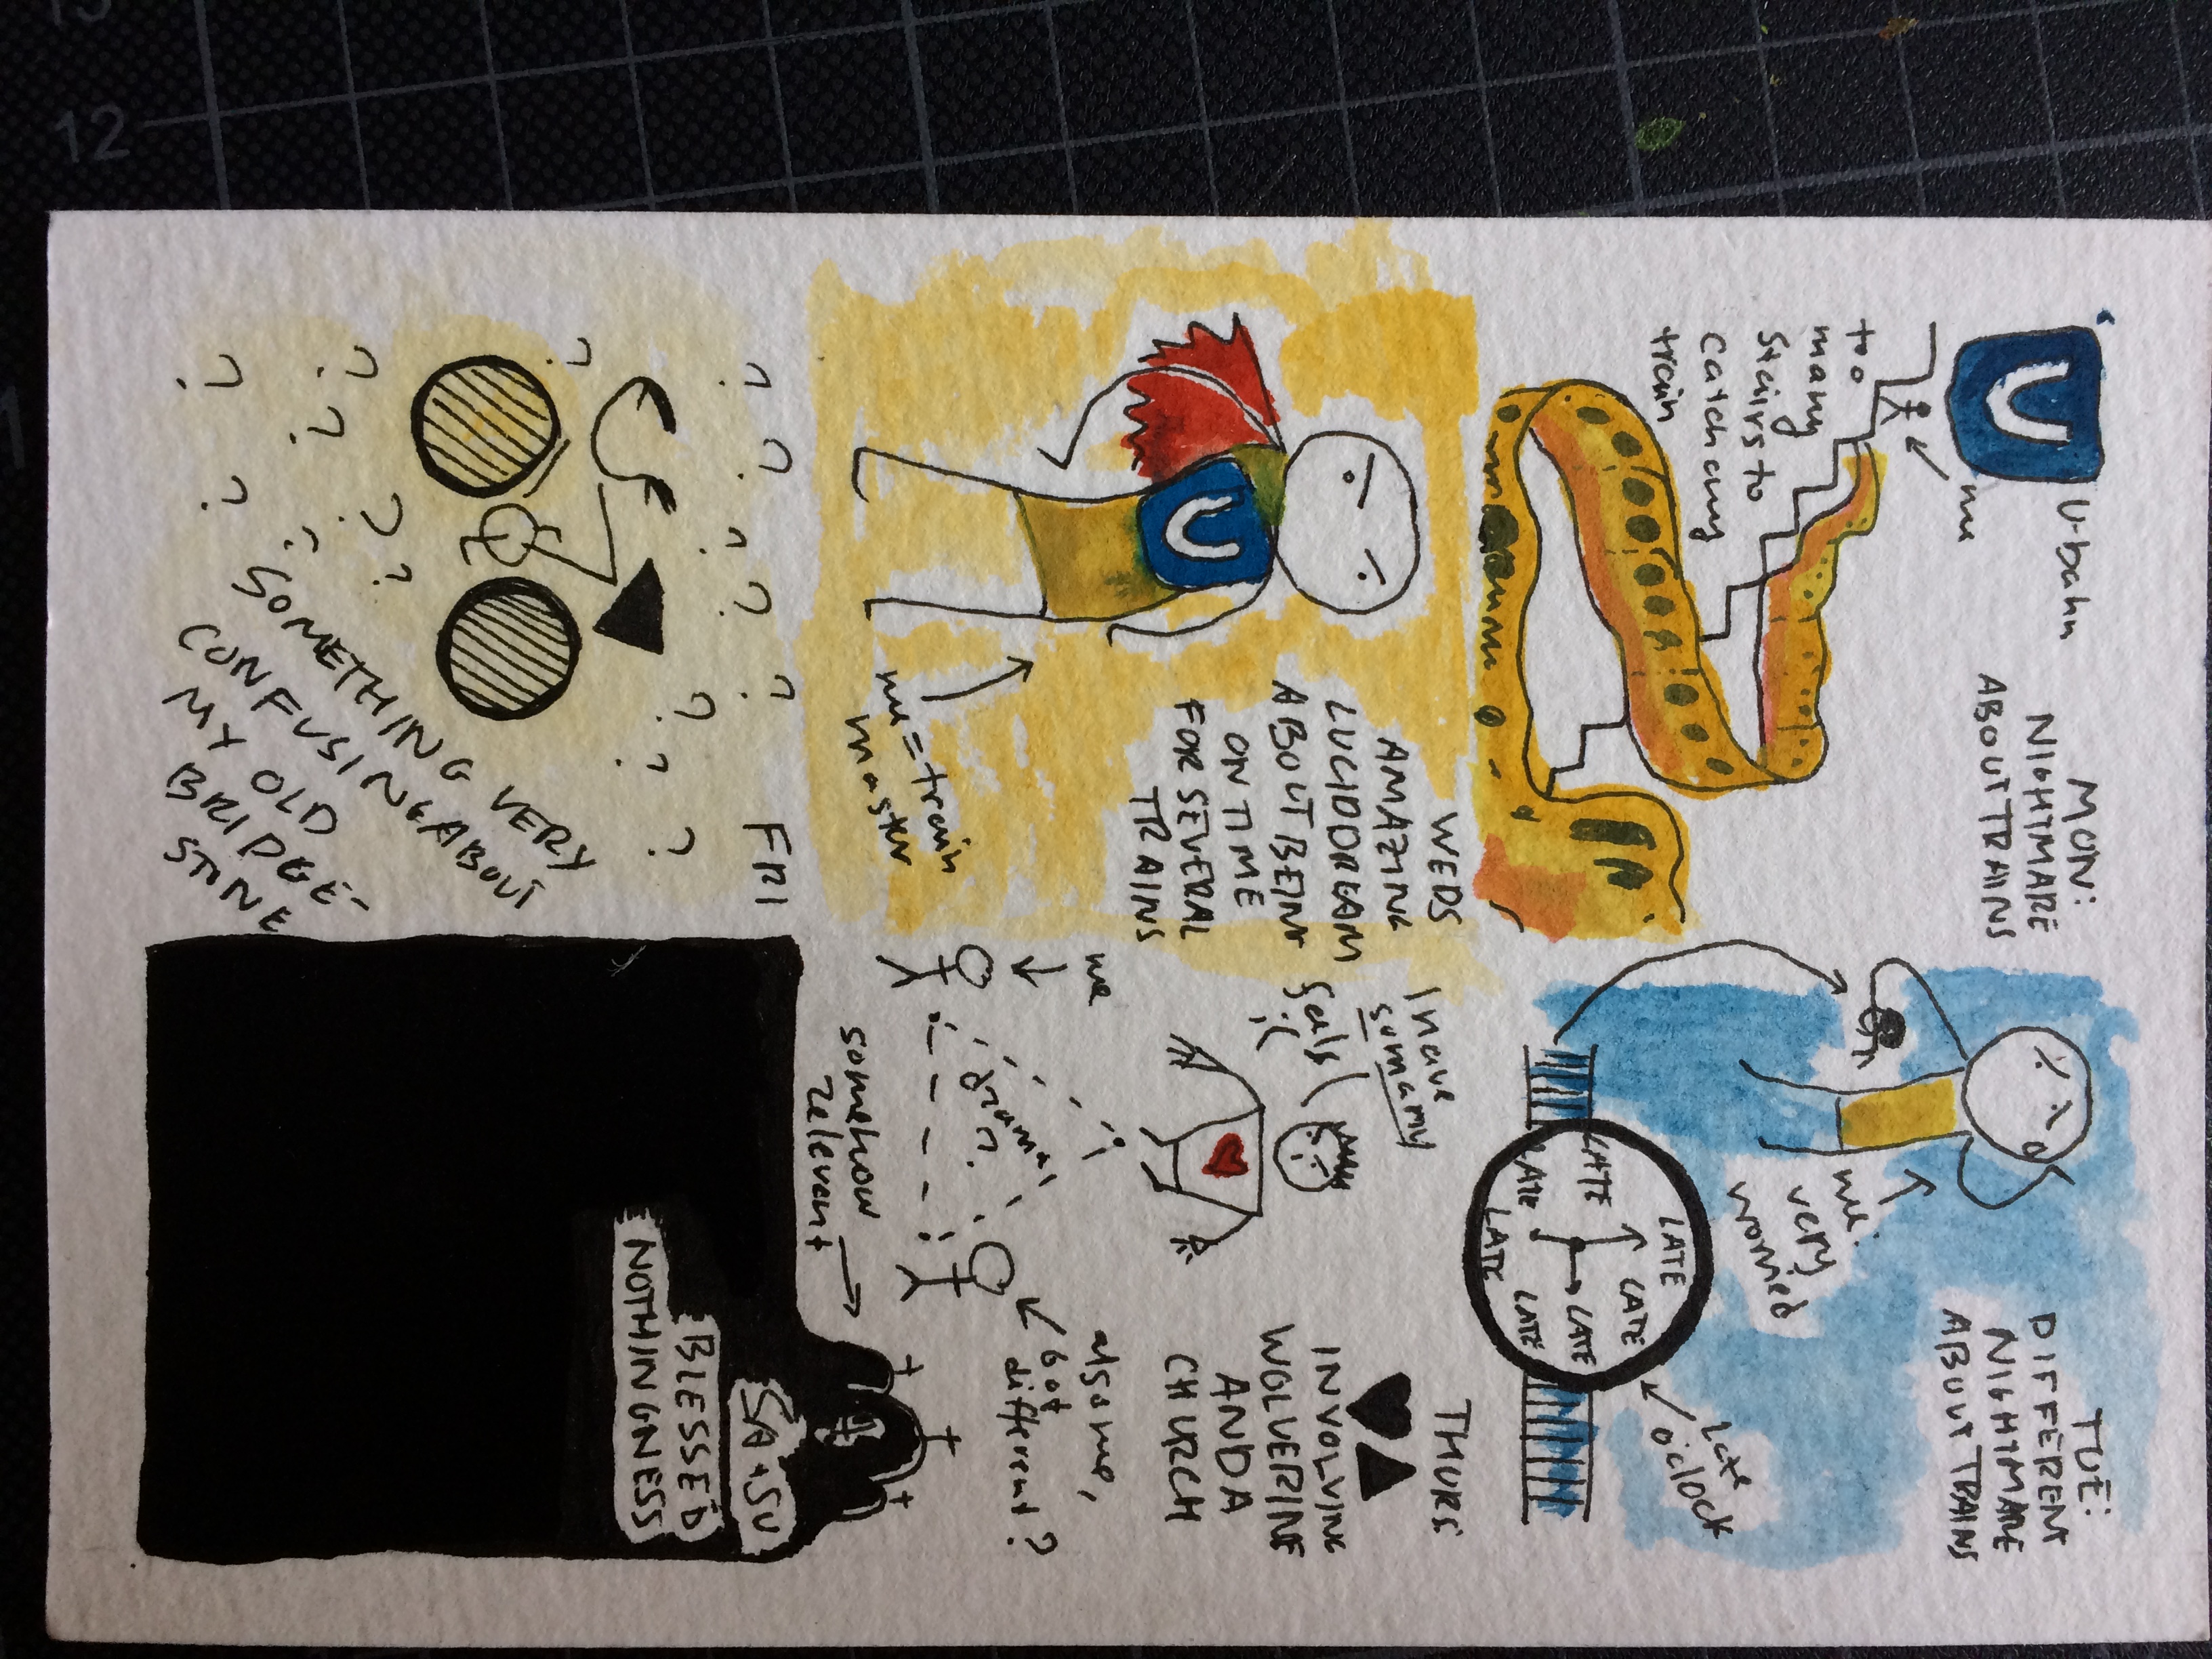 U
U-bahn
me
MON:
NIGHTMARE
ABOUT TRAINS
too
many
stairs to
catch any
train
TUE:
DIFFERENT
NIGHTMARE
ABOUT TRAINS
me:
very
worried
Late
o'clock
LATE
LATE
LATE
LATE
LATE
LATE
LATE
WEDS
AMAZING
LUCID DREAM
ABOUT BEING
ON TIME
FOR SEVERAL
TRAINS
U
me = train
master
THURS:
♥▲
INVOLVING
WOLVERINE
AND A
CHURCH
I have
so many
feels
:(
me
drama!
?
also me,
but
different?
somehow
relevant
FRI
? ? ? ? ?
? ? ?
?
SOMETHING VERY
CONFUSING ABOUT
MY OLD
BRIDGE-
STONE
? ? ? ?
? ? ?
SA + SU
BLESSED
NOTHINGNESS
12